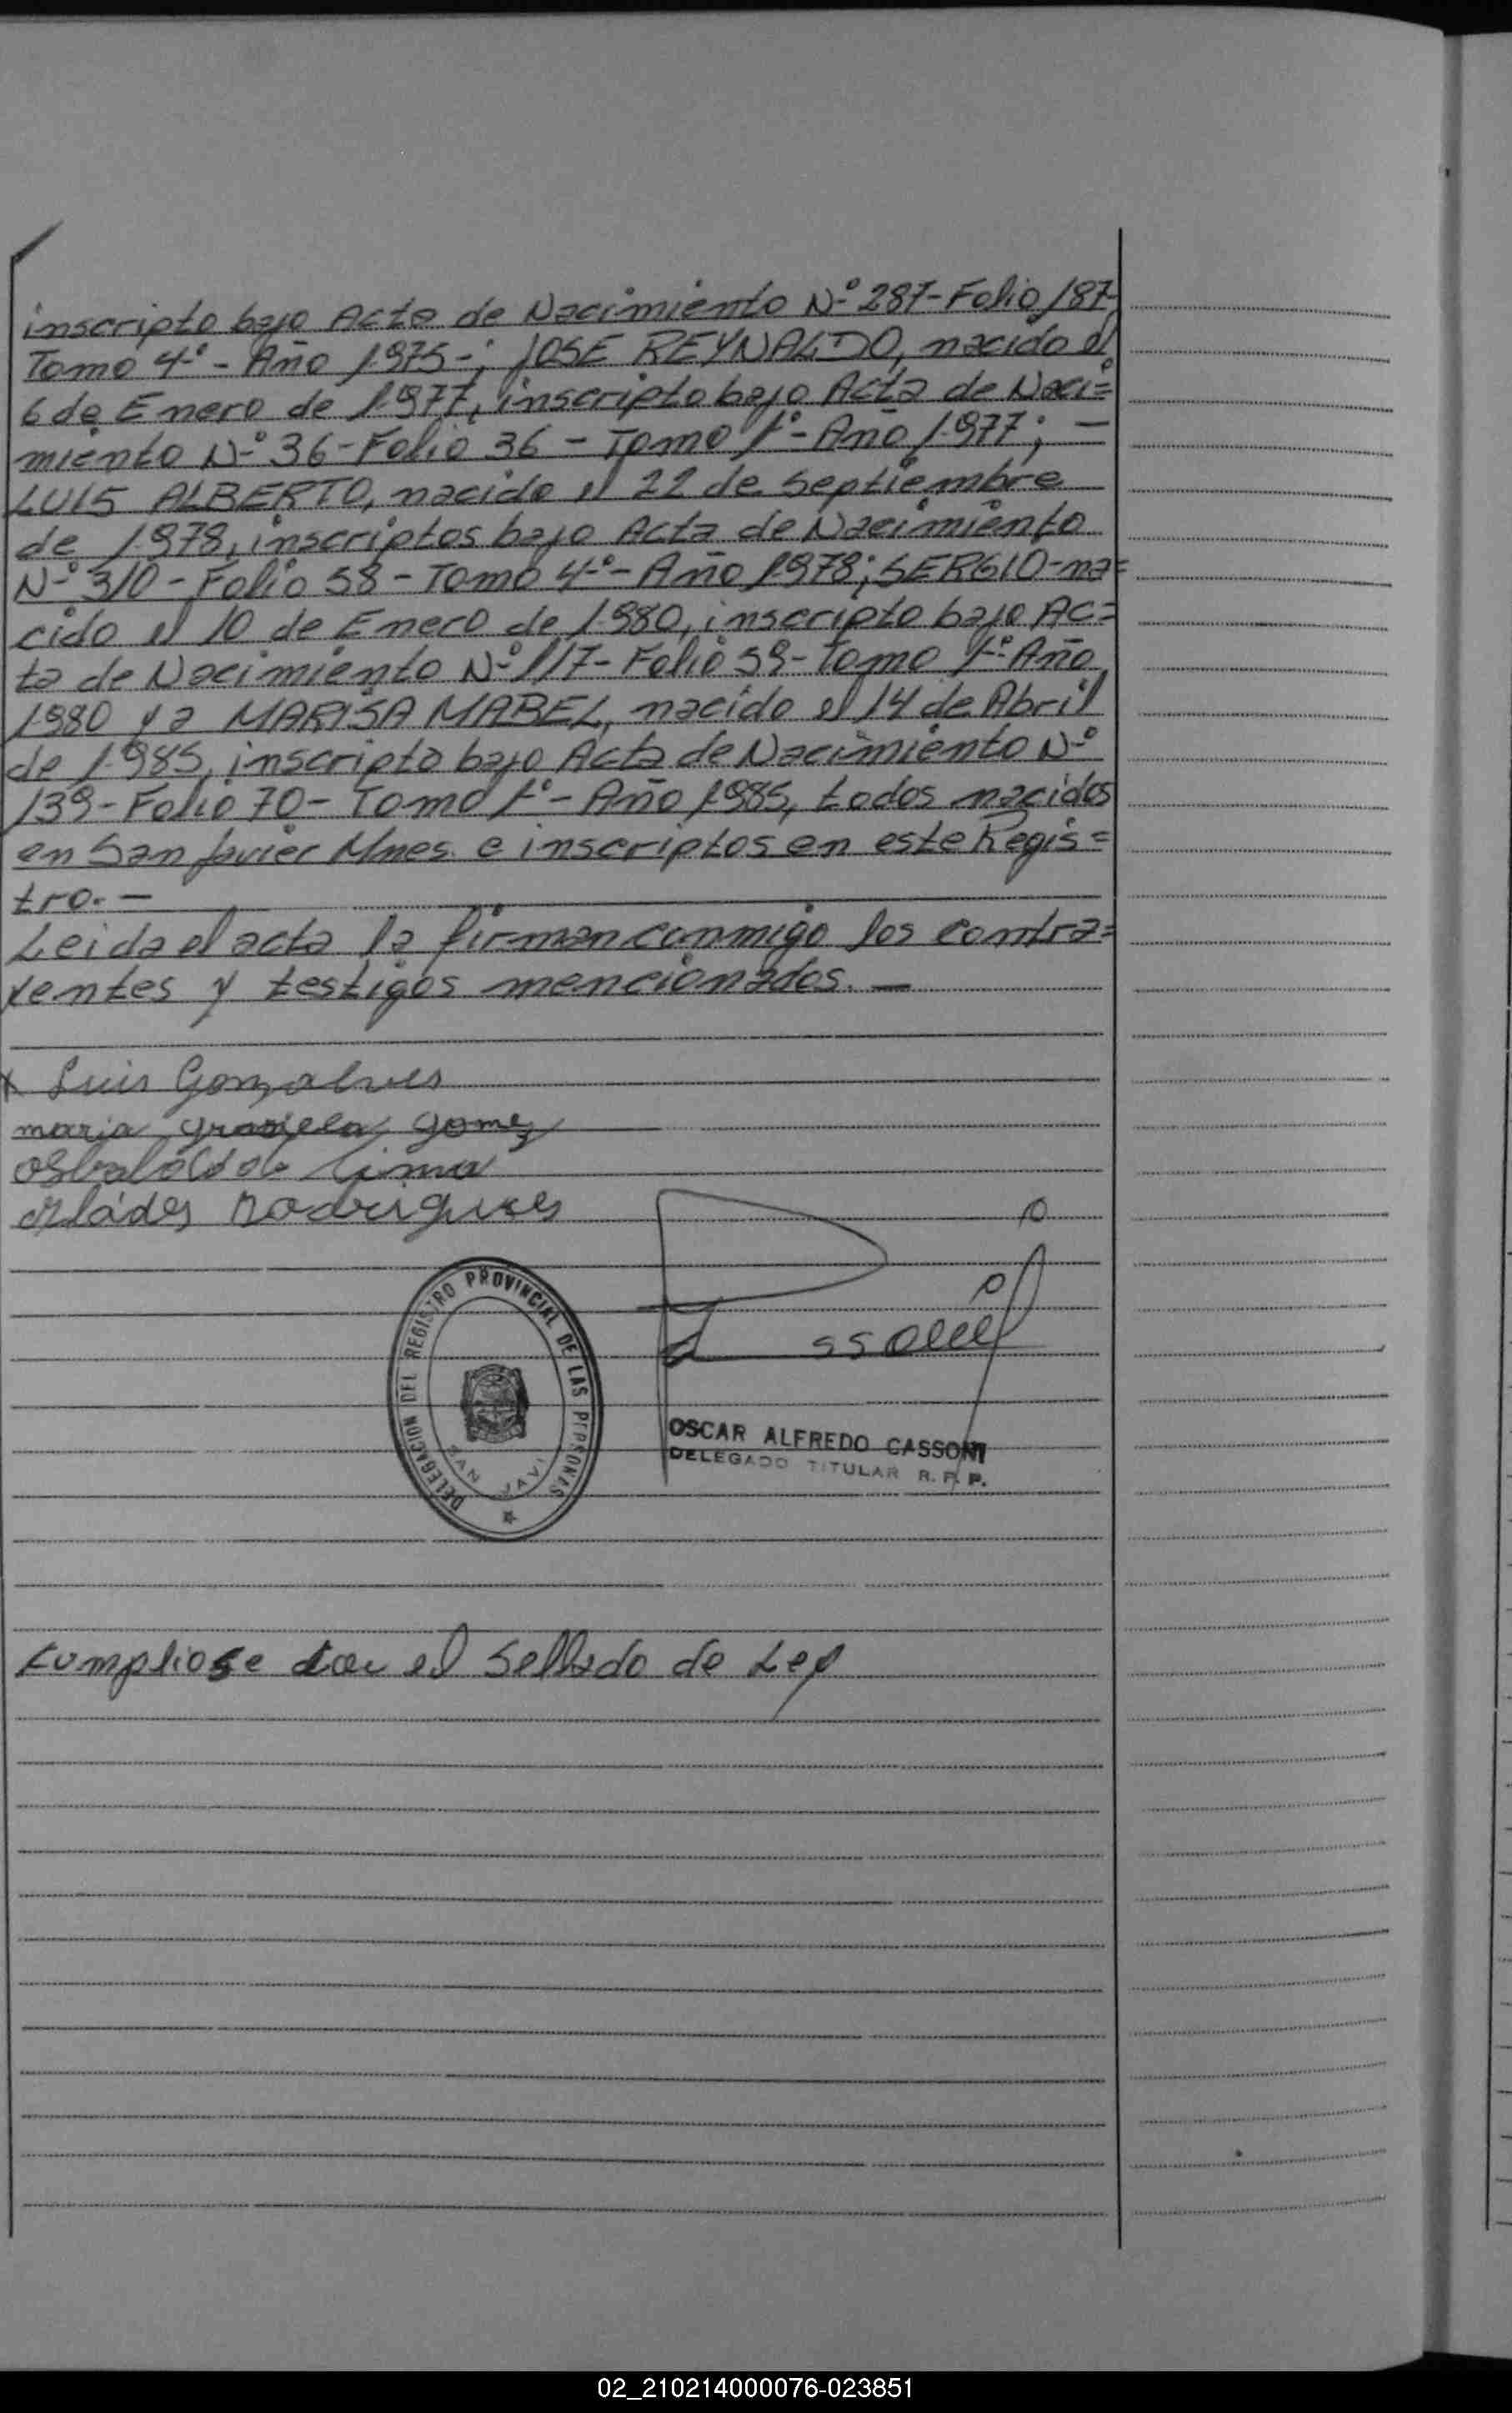 inscripto bajo Acta de Nacimiento Nº 287-Folio 187-
Tomo 4º - Año 1.975-; JOSE REYNALDO, nacido el
6 de Enero de 1.977, inscripto bajo Acta de Naci=
miento Nº 36-Folio 36 - Tomo 1º- Año 1.977; -
LUIS ALBERTO, nacido el 22 de Septiembre
de 1.978, inscriptos bajo Acta de Nacimiento
Nº 310 - Folio 58 - Tomo 4º- Año 1978; SERGIO-na=
cido el 10 de Enero de 1.980, inscripto bajo Ac=
ta de Nacimiento Nº 117- Folio 59- Tomo 1º- Año
1.980 y a MARISA MABEL, nacido el 14 de Abril
de 1.985, inscripta bajo Acta de Nacimiento Nº
139-Folio 70- Tomo 1º- Año 1985, todos nacidos
en San Javier Mnes. e inscriptos en este Regis=
tro.-
Leida el acta la firman conmigo los contra=
yentes y testigos mencionados. -
x Luis Gonzalves
maria grasiela gomez
osbaldo de lima
Rodrigues
DELEGACION DEL REGISTRO PROVINCIAL DE LAS PERSONAS
SAN JAVI
OSCAR ALFREDO CASSONI
DELEGADO TITULAR R. P. P.
Cumpliose con el Sellado de Ley
02_210214000076-023851